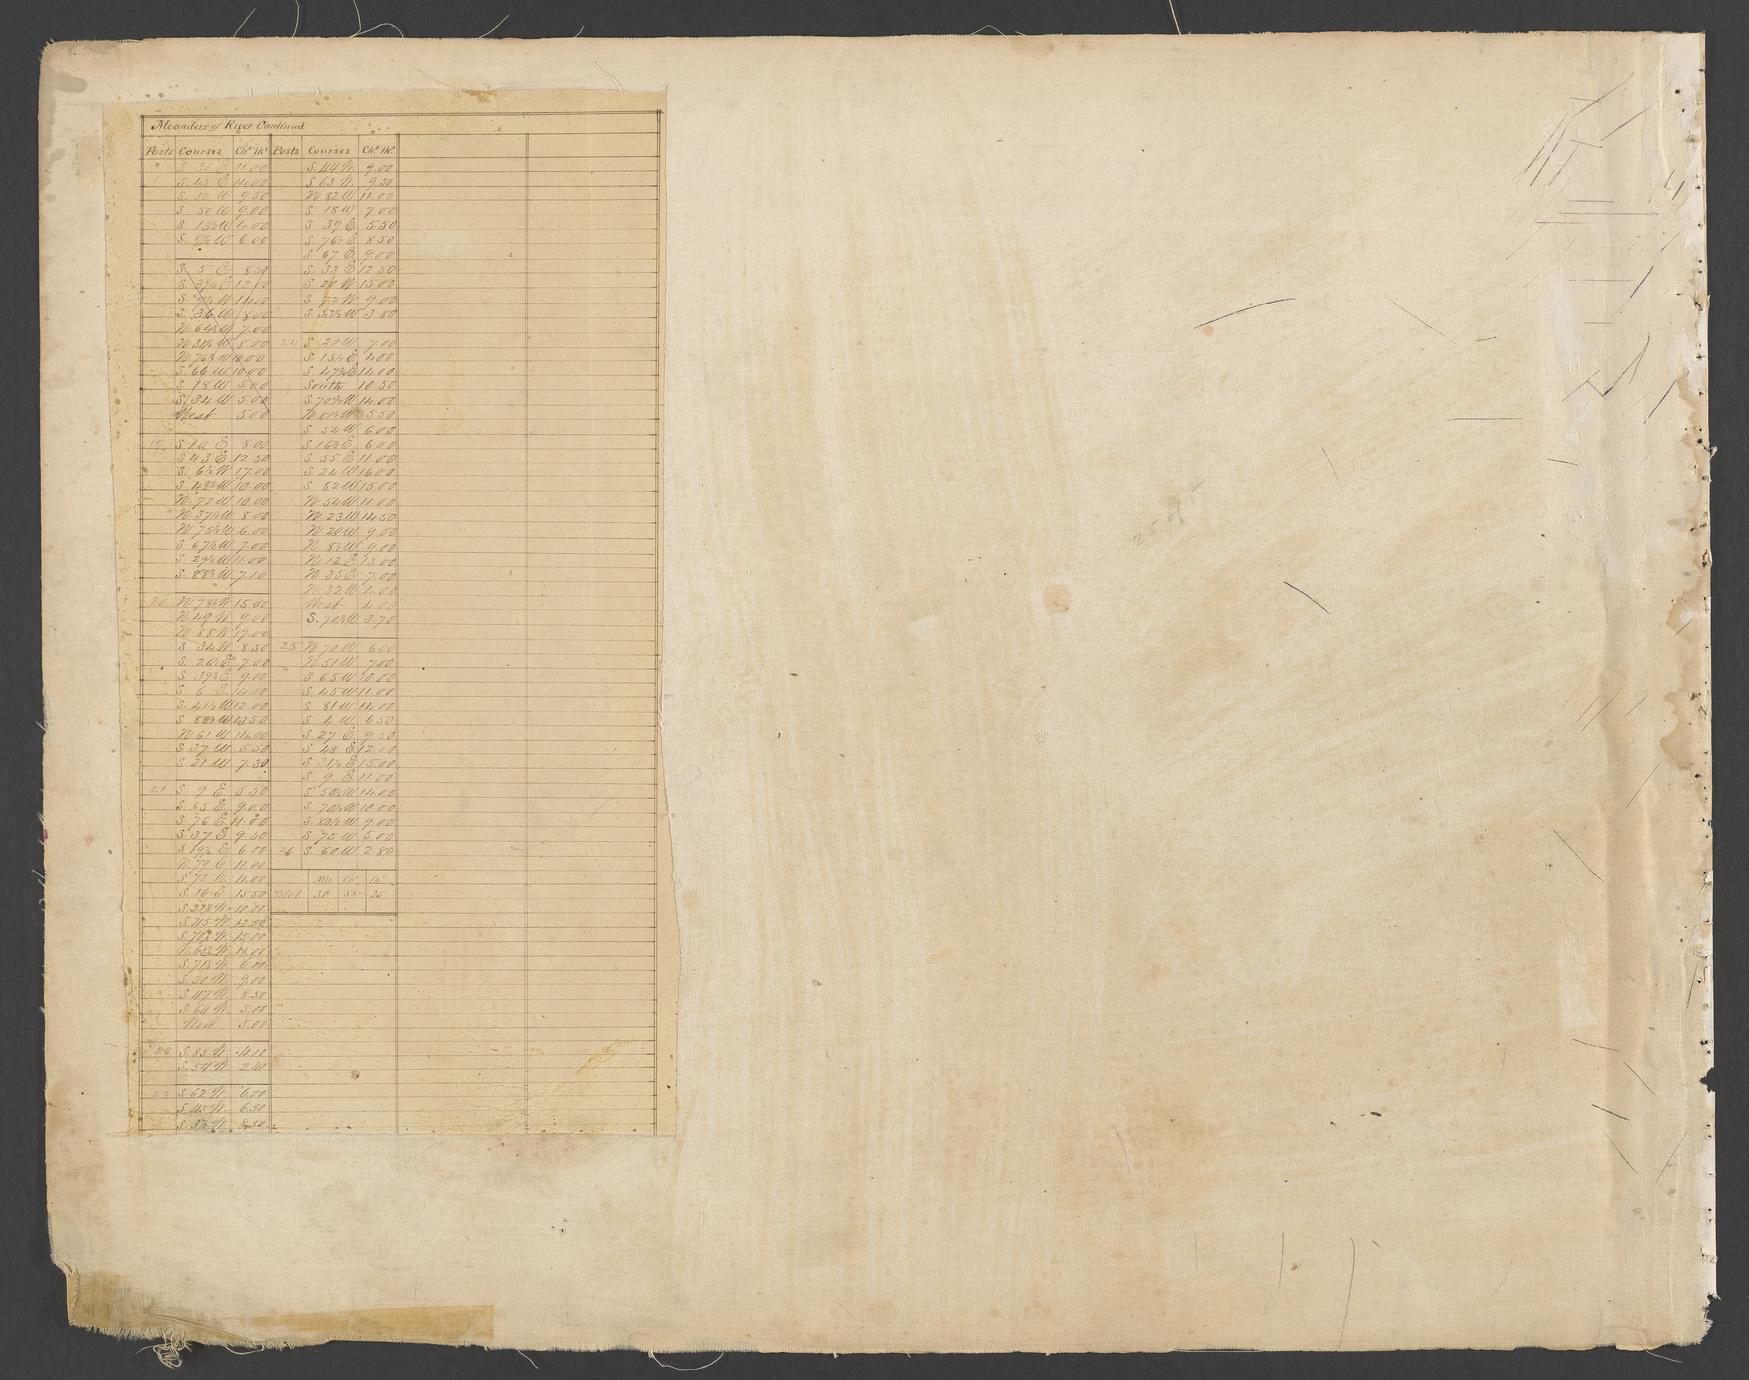 Meanders of River Continued
Posts Courses Chs lks Posts Courses Chs lks
S. 43 E 14.00
S. 50 W 9.00
S. 13½ W 4.00
S. 9½ W 6.00
S. 5 E 8.50
S. 36 W 8.00
N. 64½ W 7.00
N. 31½ W 8.00
N. 76½ W 10.00
S. 66 W 10.00
S. 18 W 5.80
S. 34 W 5.00
West 5.00
19 S. 10 E 8.00
S 43 E 12.50
S. 6½ W 17.00
S. 48½ W 10.00
N. 72 W 10.00
N. 37½ W 8.00
N. 75½ W 6.00
S. 67½ W 7.00
S. 29½ W 11.00
S. 88½ W 7.10
20 N. 78½ W 15.00
N. 49 W 9.00
N. 88 W 17.00
S. 34 W 8.50
S. 26½ E 7.00
S. 39½ E 9.00
S. 6 E 14.00
S. 41½ W 12.00
S. 88½ W 13.50
N. 61 W 14.00
S. 37 W 5.50
S. 21 W 7.30
21 S. 9 E 5.50
S. 65 E 9.00
S. 76 E 11.00
S. 37 E 9.50
S. 19½ E 6.00
N. 79 E 11.00
S. 16 E 15.50
S. 45 W 12.50
S. 20 W 9.00
S. 47 W 8.50
S. 64 W 5.00
West 5.00
22 S. 83 W 4.00
S. 54 W 2.40
23 S. 62 W 6.00
S. 45 W 6.50
S. 3½ W 8.50
S. 44 W 9.00
S. 63 W 9.50
N 82 W 11.00
S 18 W 7.00
S 39 E 5.50
S. 76½ E 8.50
S 67 E 9.00
S. 33 E 12.50
S. 20 W 15.00
S. 72 W 9.00
S. 53½ W 3.80
24 S. 20 W 7.00
S. 15½ E 4.00
S. 47½ E 14.00
South 10.50
S. 70½ W 14.00
N 81½ W 5.50
S. 54 W 6.00
S 16½ E 6.00
S 55 E 11.00
S 24 W 16.00
S 82 W 15.00
N. 54 W 11.00
N. 23 W 14.50
N. 20 W 9.00
N 8½ W 9.00
N. 12 E 13.00
N. 35 E 7.00
N. 32 W 4.00
West 4.00
S. 70½ W 3.70
25 N 70 W 6.00
N 51 W 7.00
S 65 W 10.00
S. 45 W 11.00
S 81 W 14.00
S 4 W 6.50
S. 27 E 9.50
S. 48 E 12.00
S. 31½ E 15.00
S 9 E 11.00
S 50½ W 14.00
S 70½ W 10.00
S. 80½ W 9.00
S 75 W 5.00
26 S 60 W 2.80
Ms Chs lks
Total 30 55 25
25 of 5